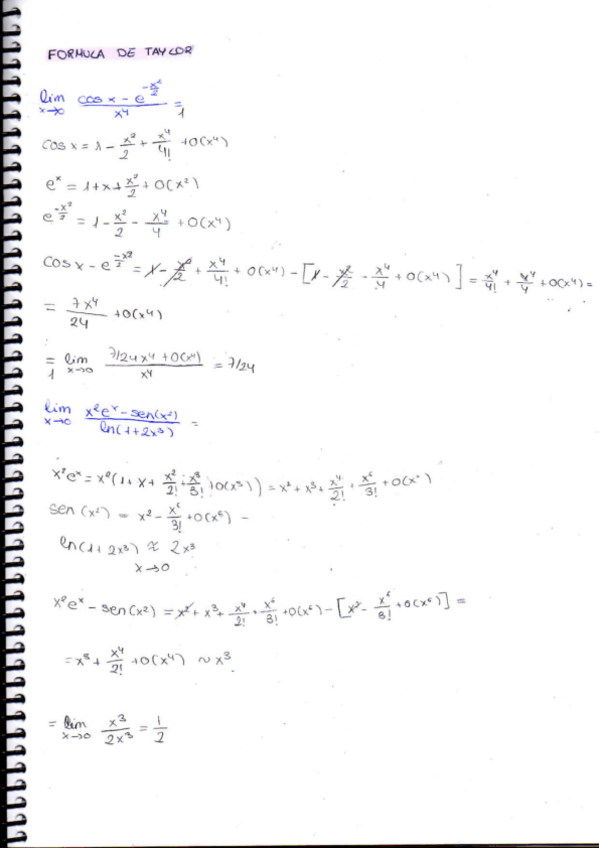 FORMULA DE TAYLOR
lim x→0 (cos x - e^(-x²/2))/x⁴ =₁
cos x = 1 - x²/2 + x⁴/4! + O(x⁴)
eˣ = 1 + x + x²/2 + O(x²)
e^(-x²/2) = 1 - x²/2 - x⁴/4 + O(x⁴)
cos x - e^(-x²/2) = 1 - x²/2 + x⁴/4! + O(x⁴) - [1 - x²/2 - x⁴/4 + O(x⁴)] = x⁴/4! + x⁴/4 + O(x⁴) =
= 7x⁴/24 + O(x⁴)
=₁ lim x→0 (7/24 x⁴ + O(x⁴))/x⁴ = 7/24
lim x→0 (x²eˣ - sen(x²))/ln(1+2x³) =
x²eˣ = x²(1 + x + x²/2! + x³/3! + O(x³)) = x² + x³ + x⁴/2! + x⁵/3! +
sen(x²) = x² - x⁶/3! + O(x⁶) -
ln(1+2x³) ≈ 2x³
x→0
x²eˣ - sen(x²) = x² + x³ + x⁴/2! + x⁵/3! + O(x⁵) - [x² - x⁶/3! + O(x⁶)] =
= x³ + x⁴/2! + O(x⁴) ~ x³
= lim x→0 x³/2x³ = 1/2